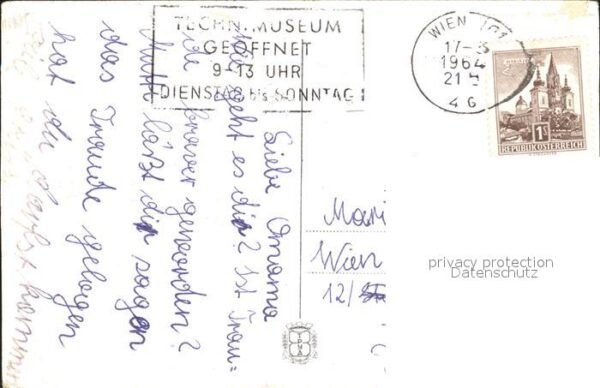 TECHN. MUSEUM
GEÖFFNET
9-13 UHR
DIENSTAG bis SONNTAG
WIEN 101
17-3
1964
21
4G
1S
REPUBLIK ÖSTERREICH
Liebe Omama
Wie geht es dir? Ist Trau=
de braver geworden?
Mutti läßt dir sagen
das Traude gelogen
hat du darfst kommen
Mari
Wien
12/
privacy protection
Datenschutz